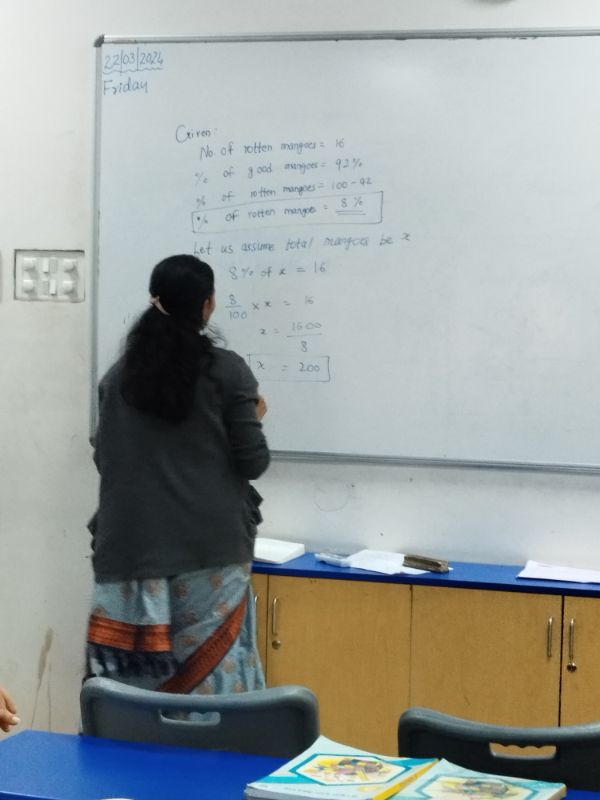 22/03/2024
Friday
Given:
No. of rotten mangoes = 16
% of good mangoes = 92%
% of rotten mangoes = 100 - 92
% of rotten mangoes = 8%
Let us assume total mangoes be x
8% of x = 16
8/100 × x = 16
x = 1600/8
x = 200